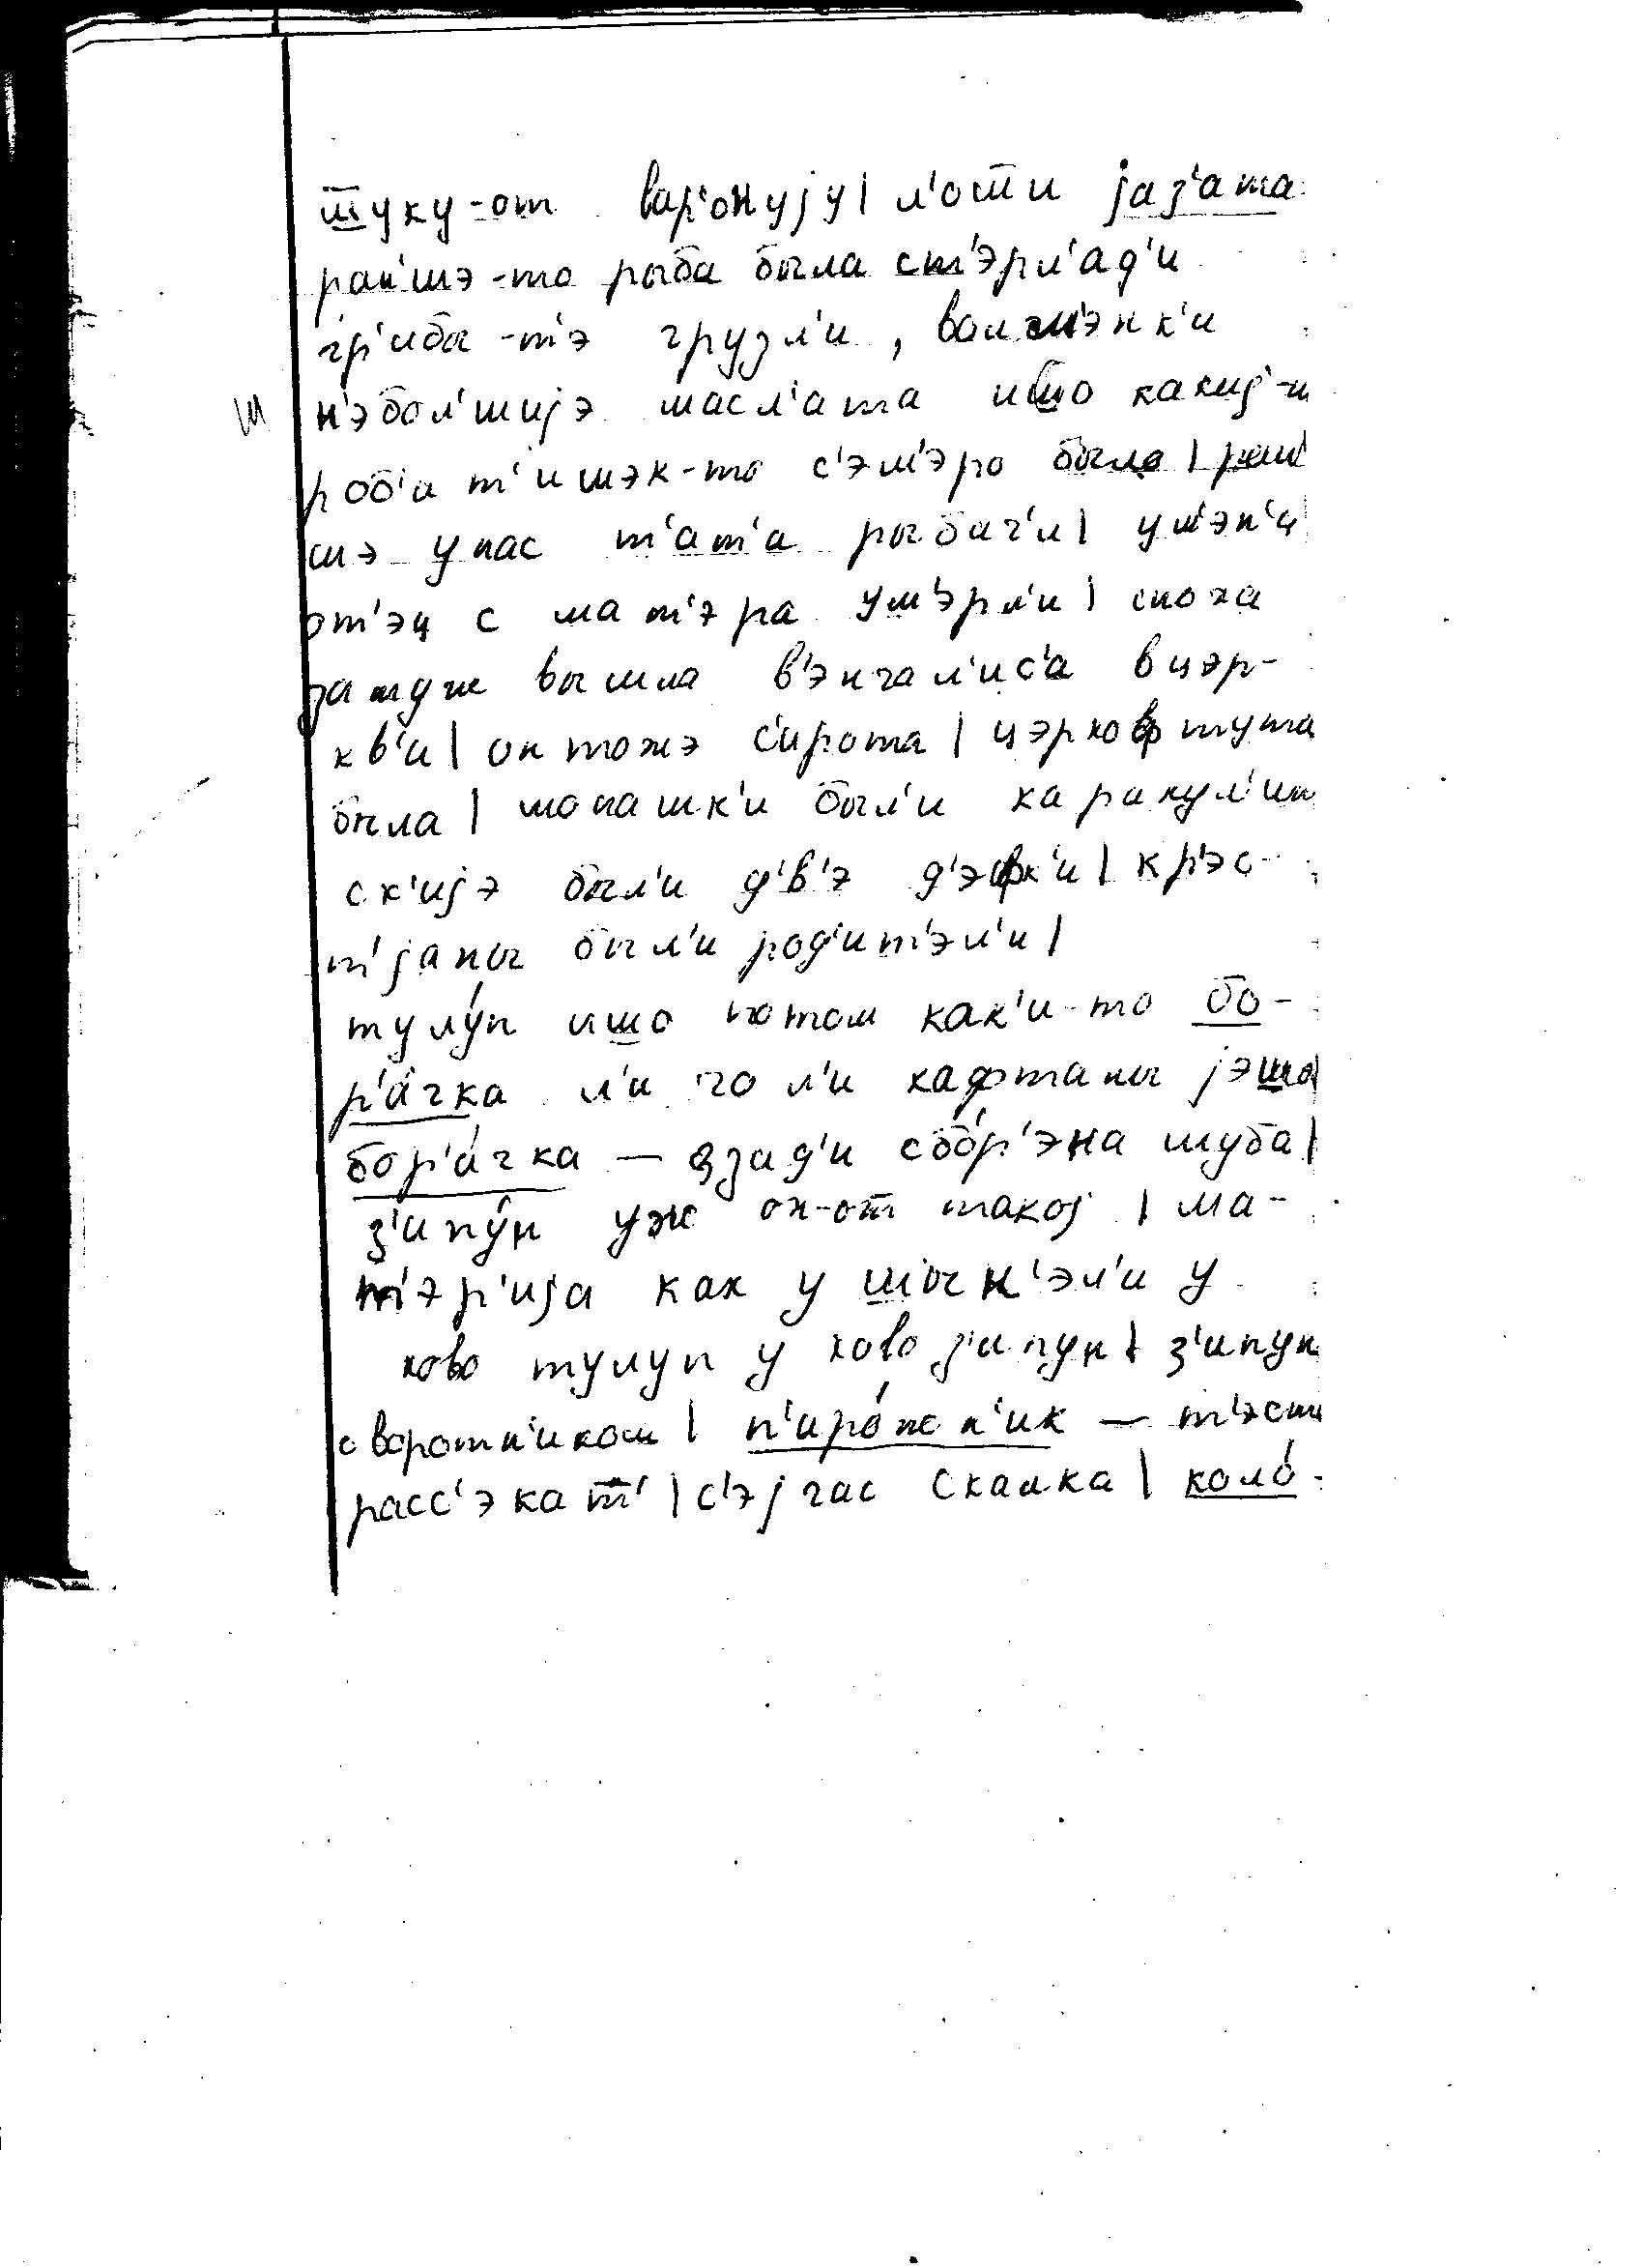 шуку-от вар'онују| л'оти јаз'ата
ран'шэ-то рыба была ст'эрл'ад'и
гр'ибы-т'э грузл'и, волм'энк'и
н'эбол'шијэ масл'ата ишо какиј-и
ш
роб'а т'ишэк-то с'эм'эро было | ран'
шэ унас т'ат'а рыбач'и| ум'эн'а
от'эц с мат'эра ум'эрл'и| снока
замуж вышла в'энчал'ис'а вцэр-
кв'и| он тожэ с'ирота | цэрковф тута
была | монашк'и был'и каракул'ин
ск'ијэ был'и д'в'э д'эфк'и | кр'эс-
т'јаны был'и род'ит'эл'и|
тулу́п ишо потом как'и-то бо-
р'а́чка л'и чо л'и кафтаны јэшо
бор'а́чка — взад'и сбо́р'эна шуба|
з'ипу́н уж он-от такој | ма-
т'эр'ија как у шын'эл'и у
ково тулуп у ково з'ипун| з'ипун
с воротн'иком | п'иро́жн'ик — т'эст
расс'экат' | с'эјчас скалка | коло́-